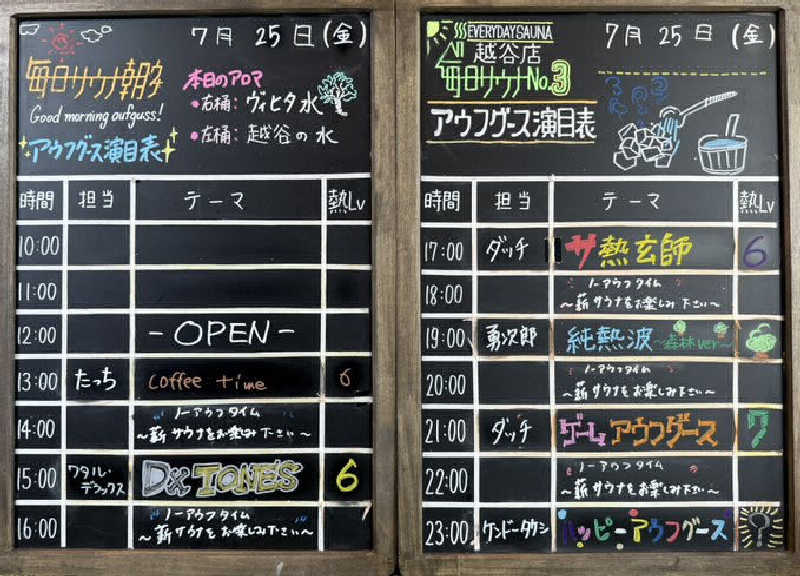 7月 25日(金)
毎日サウナ朝務
Good morning aufguss!
アウフグース演目表
本日のアロマ
・右桶: ヴィヒタ水
・左桶: 越谷の水
時間 担当 テーマ 熱Lv
10:00
11:00
12:00 -OPEN-
13:00 たっち coffee time 6
14:00 ノーアウフタイム
〜薪サウナをお楽しみ下さい〜
15:00 ワタル・デラックス DX TONES 6
16:00 ノーアウフタイム
〜薪サウナをお楽しみ下さい〜
EVERYDAY SAUNA
越谷店
毎日サウナNo.3
アウフグース演目表
7月 25日 (金)
時間 担当 テーマ 熱Lv
17:00 ダッチ サ熱玄師 6
18:00 ノーアウフタイム
〜薪サウナをお楽しみ下さい〜
19:00 勇次郎 純熱波〜森林ver〜
20:00 ノーアウフタイム
〜薪サウナをお楽しみ下さい〜
21:00 ダッチ ゲームアウフグース 7
22:00 ノーアウフタイム
〜薪サウナをお楽しみ下さい〜
23:00 ケンドータクシ ハッピーアウフグース ?